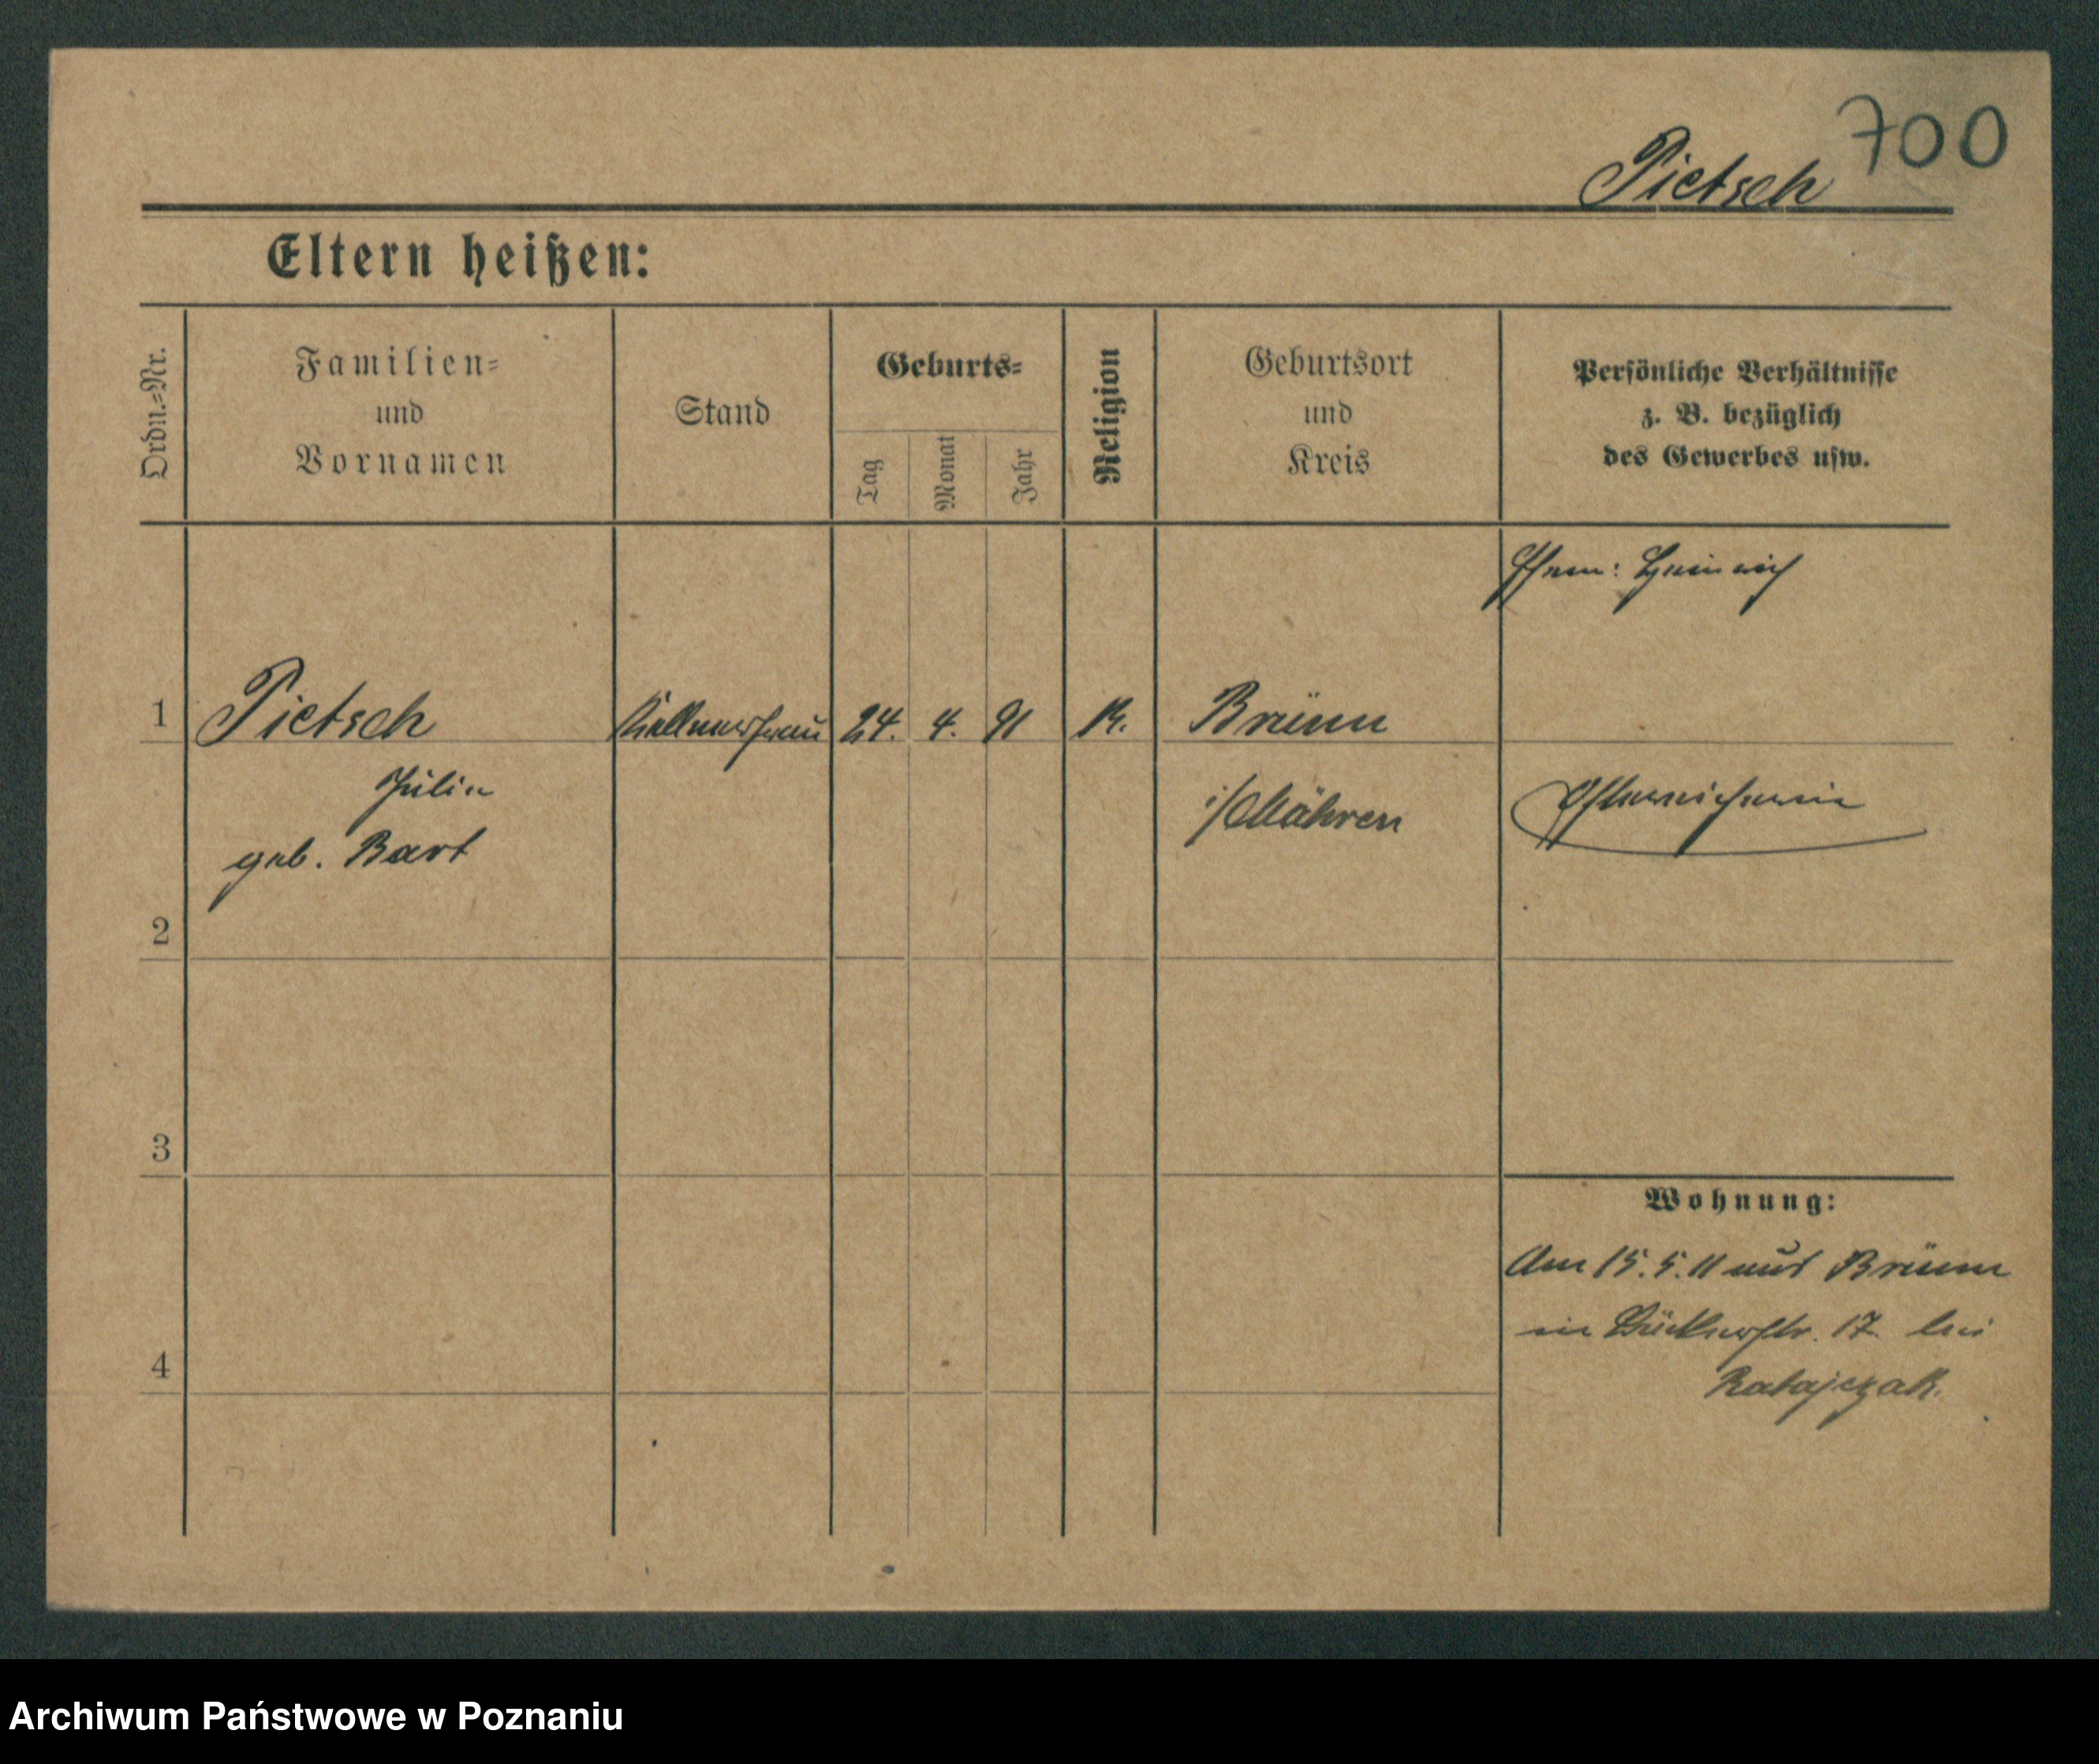 700
Pietsch
Eltern heißen:
Ordn.=Nr.
Familien=
und
Vornamen
Stand
Geburts=
Tag
Monat
Jahr
Religion
Geburtsort
und
Kreis
Persönliche Verhältnisse
z. B. bezüglich
des Gewerbes usw.
Ehem: Heinrich
1 Pietsch Kellnerfrau 24. 4. 91 K. Brünn
Julie
geb. Bart
i/Mähren
Österreicherin
2
3
Wohnung:
Am 15.5.11 aus Brünn
in Bückerstr. 17 bei
Ratajczak.
4
Archiwum Państwowe w Poznaniu